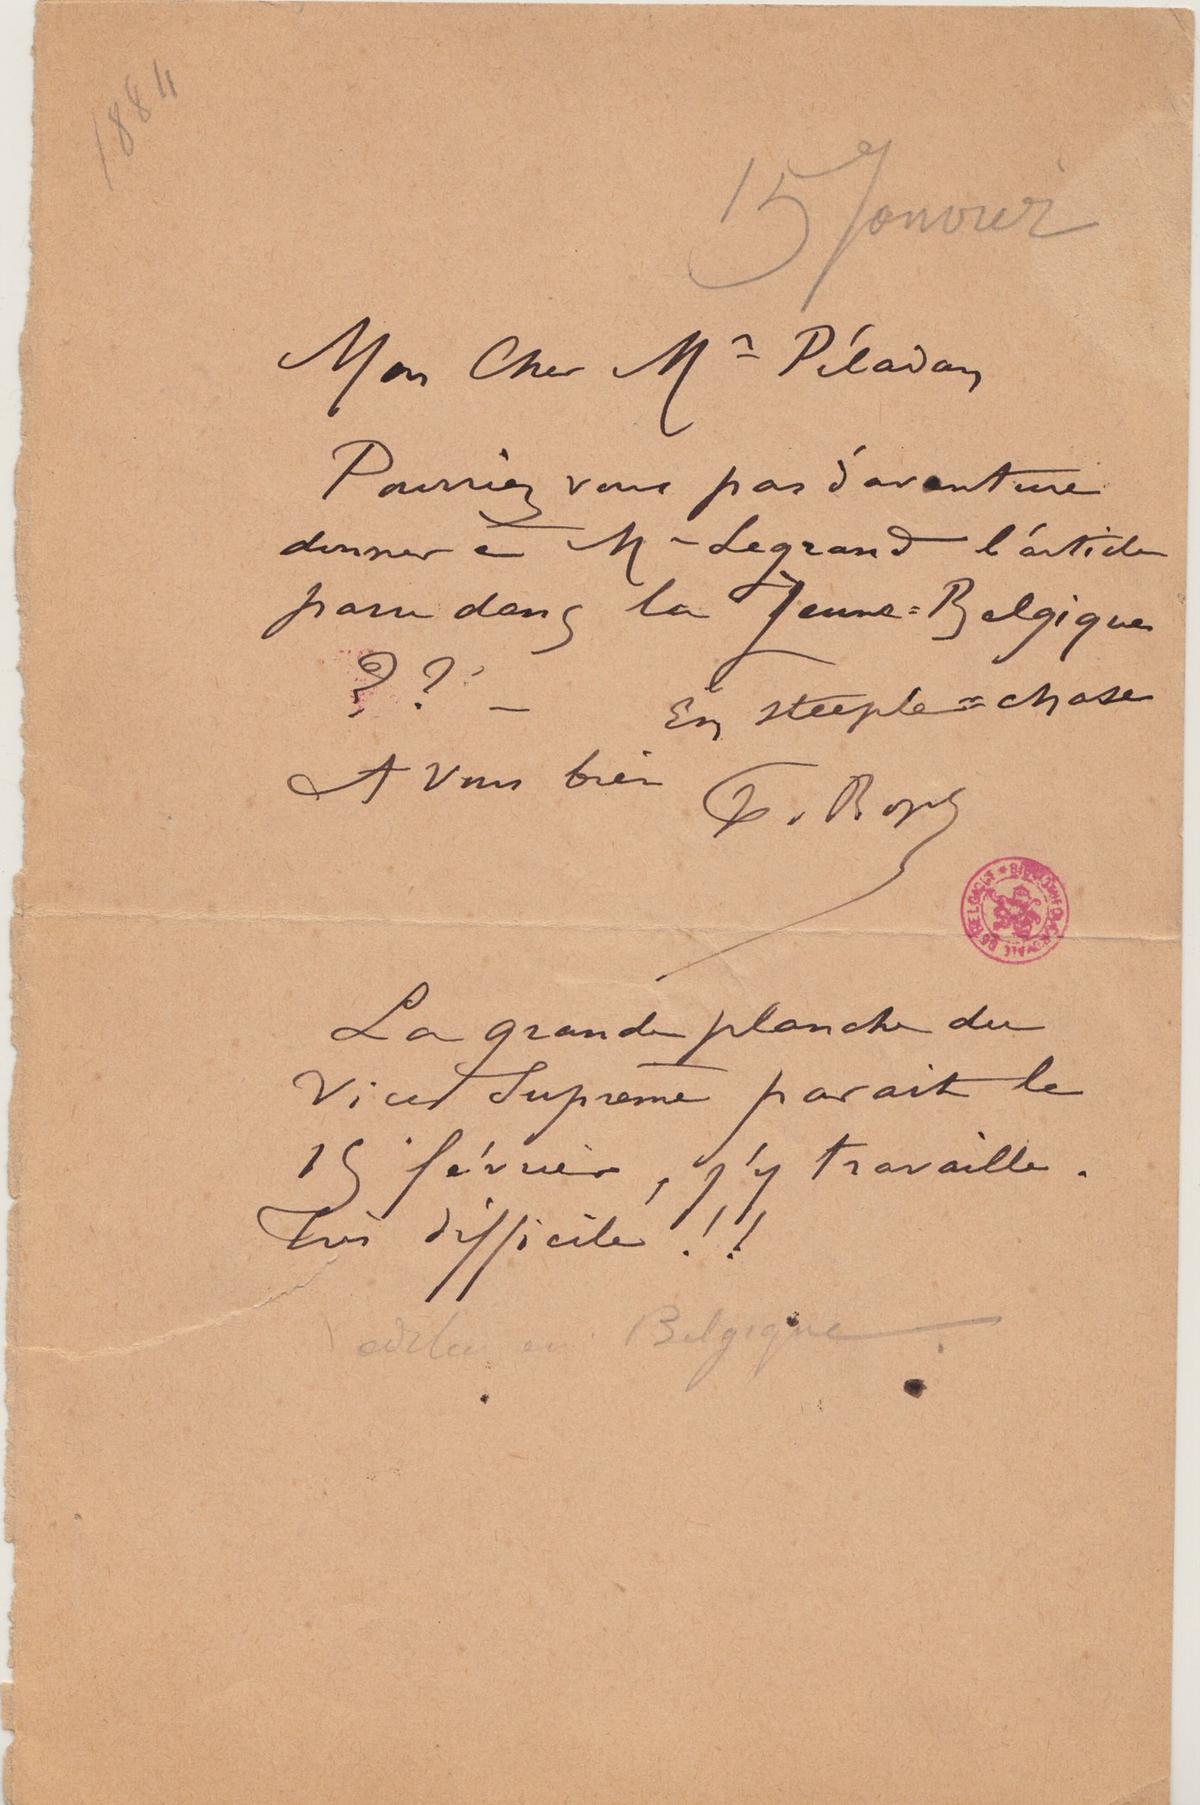 1884
15 Janvier
Mon Cher Mr Péladan
Pourriez vous pas d'aventure
donner à Mr Legrand l'article
paru dans la Jeune=Belgique
?? — En steeple=chase
A vous bien F. Rops
BIBLIOTHEQUE ROYALE DE BELGIQUE
La grande planche du
Vice Suprême parait le
15 février, j'y travaille.
Très difficile!!
Belgique